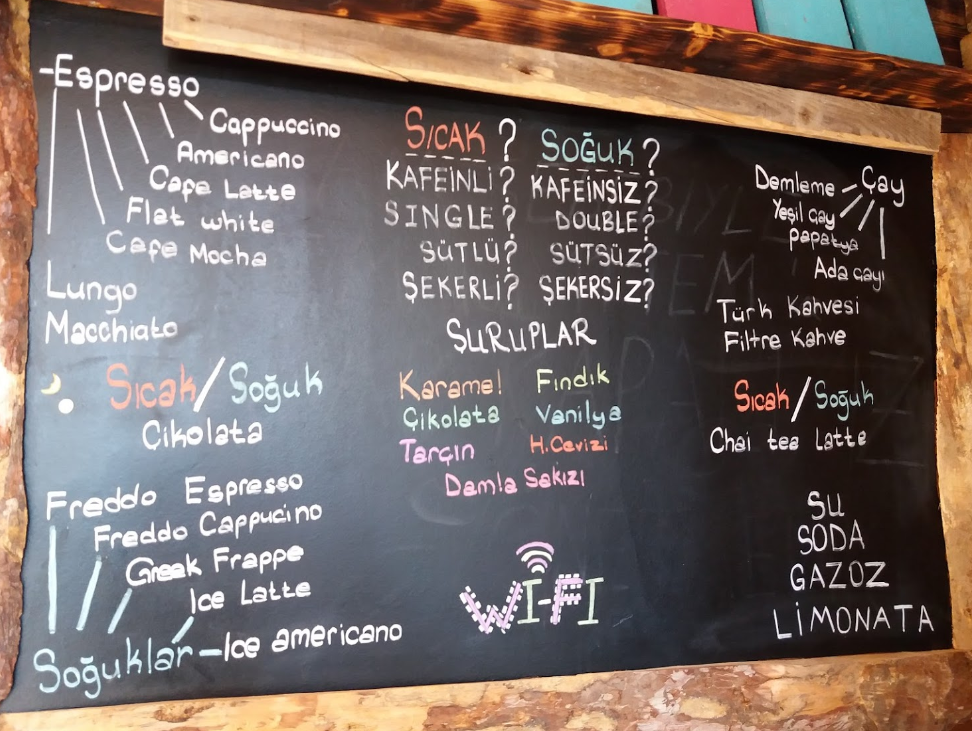 -Espresso
Cappuccino
Americano
Cafe Latte
Flat white
Cafe Mocha
Lungo
Macchiato
Sıcak/Soğuk
Çikolata
Freddo Espresso
Freddo Cappucino
Greek Frappe
Ice Latte
Soğuklar-Ice americano
SıCAK? SOĞUK?
KAFEİNLİ? KAFEİNSİZ?
SINGLE? DOUBLE?
SÜTLÜ? SÜTSÜZ?
ŞEKERLİ? ŞEKERSİZ?
ŞURUPLAR
Karamel Fındık
Çikolata Vanilya
Tarçın H.Cevizi
Damla Sakızı
WI-FI
Demleme - Çay
Yeşil çay
Papatya
Ada çayı
Türk Kahvesi
Filtre Kahve
Sıcak/Soğuk
Chai tea Latte
SU
SODA
GAZOZ
LİMONATA